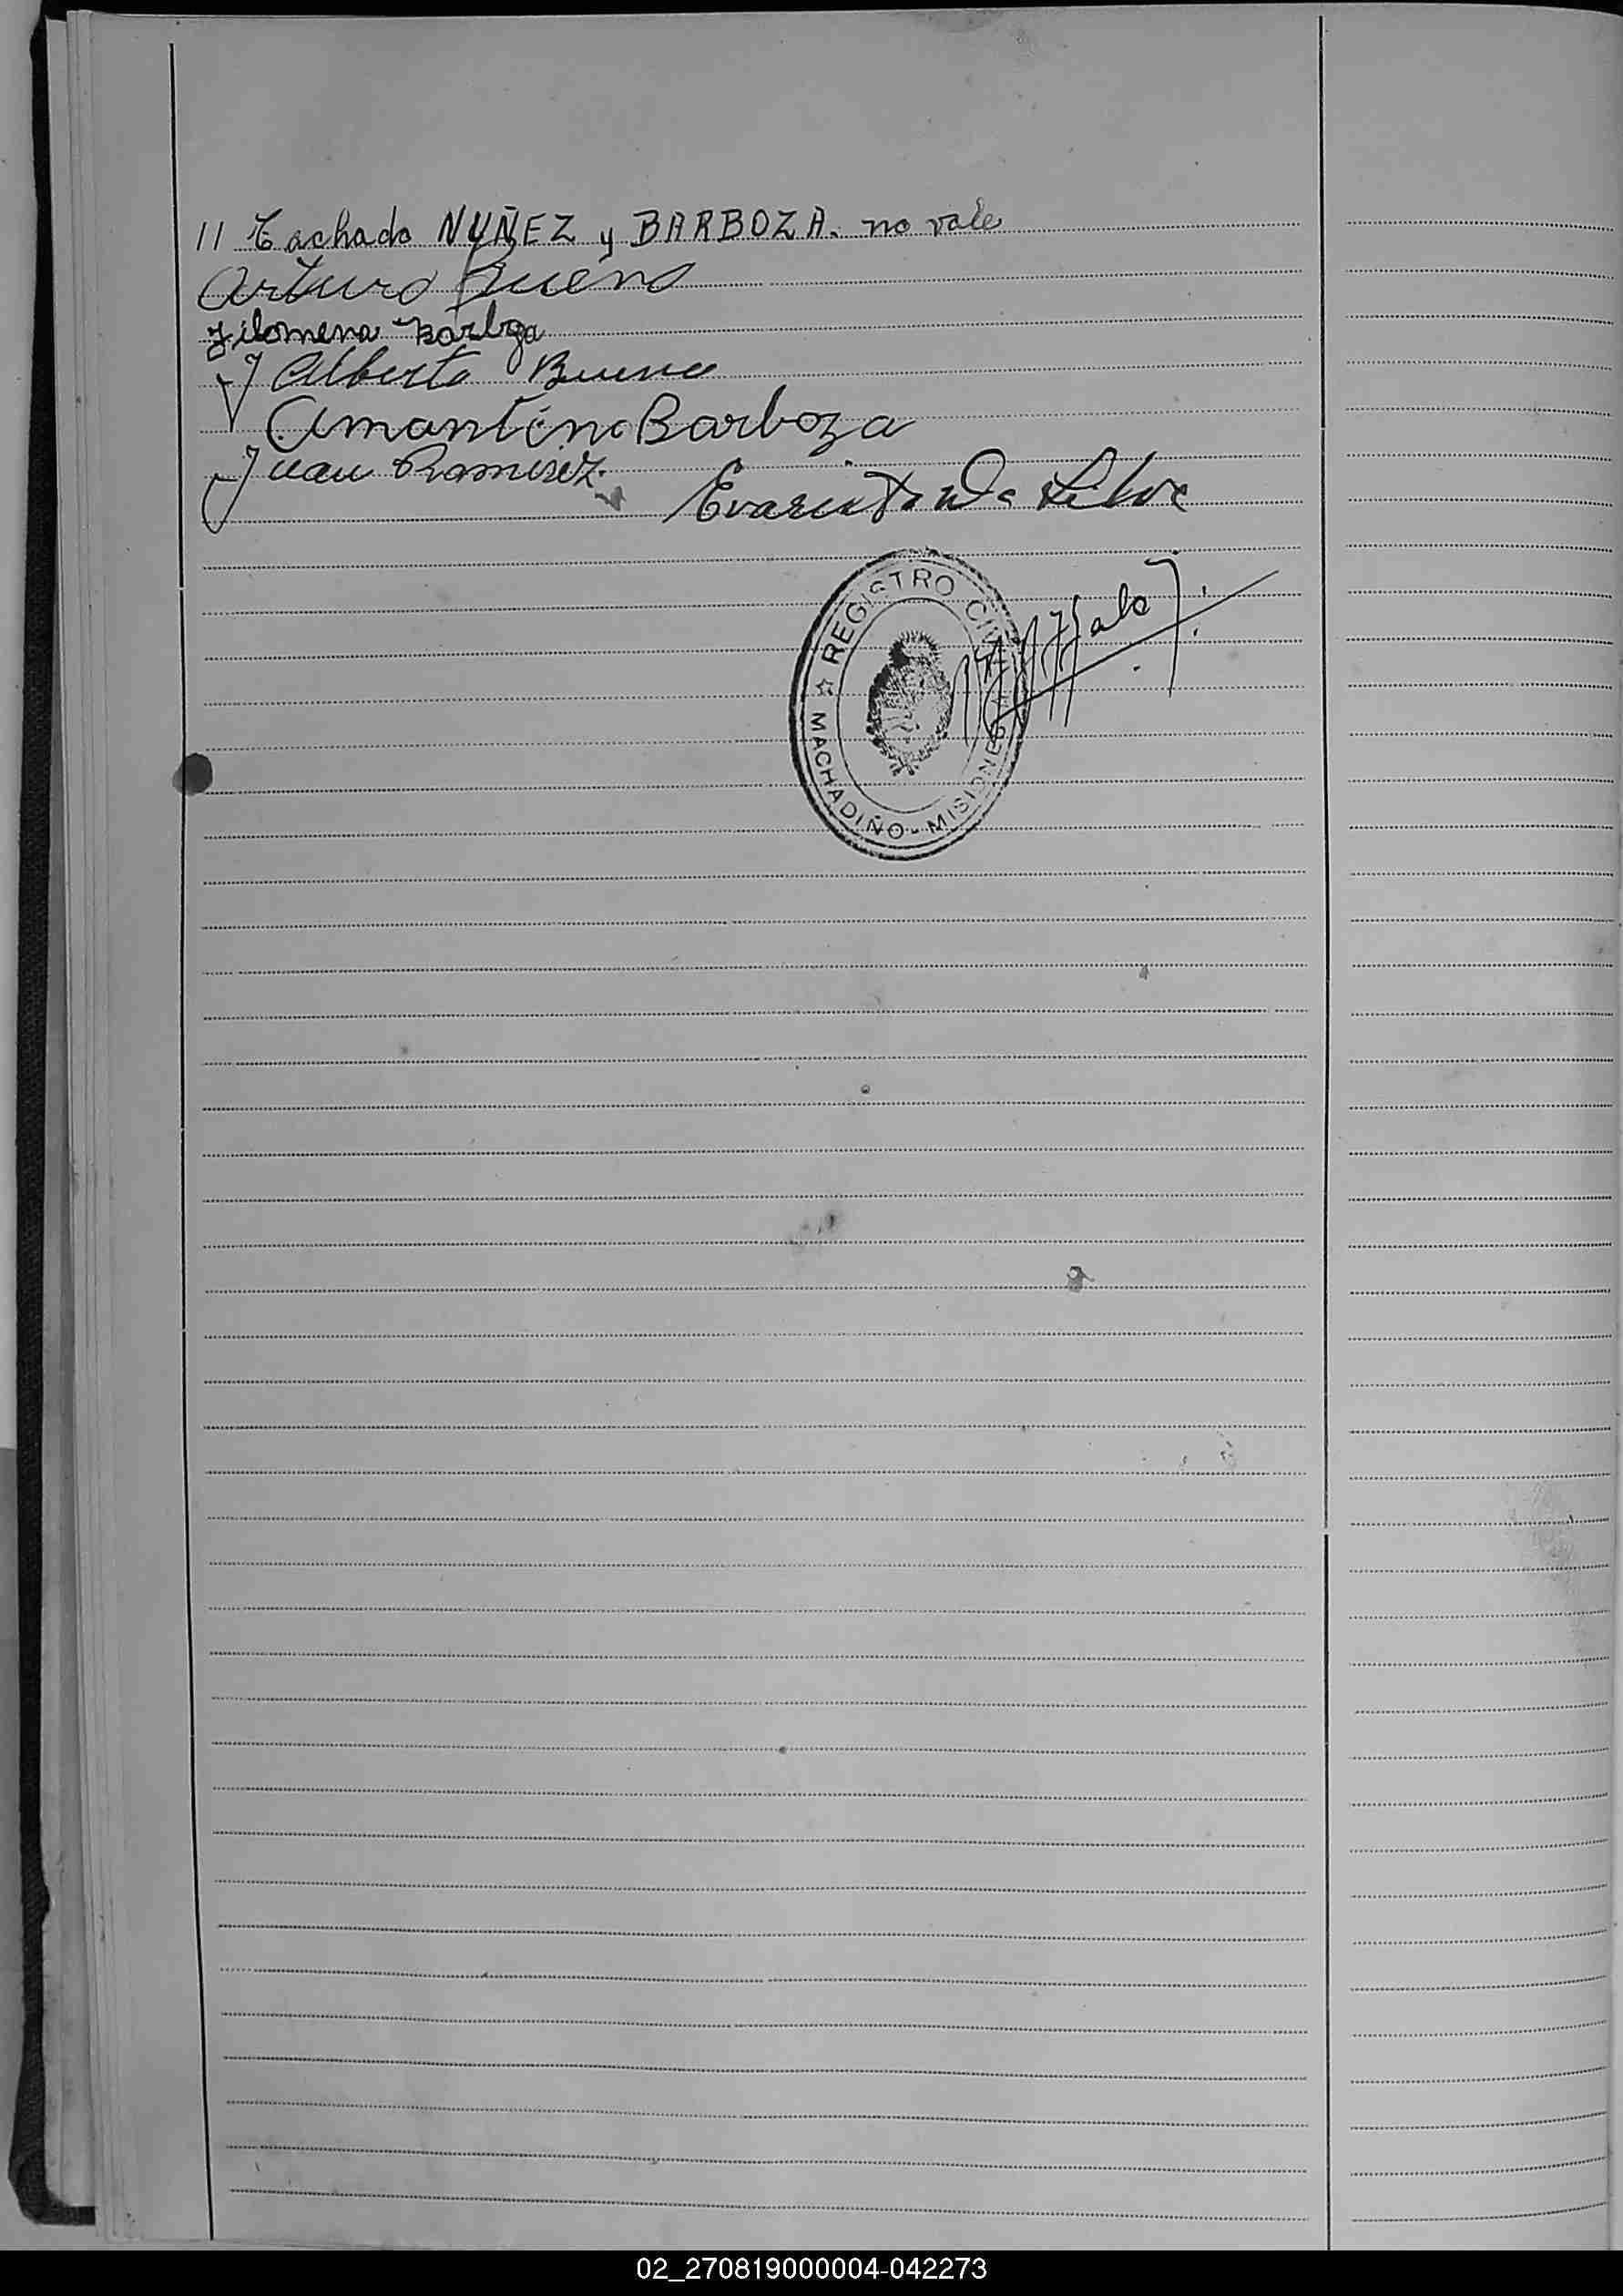 11 Tachado NUÑEZ y BARBOZA. no vale
Arturo Bueno
Filomena Barboza
J Alberto Bueno
Amantino Barboza
Juan Ramirez.
Evaristo Da Silva
REGISTRO CIVIL
☆ MACHADIÑO - MISIONES
02_270819000004-042273